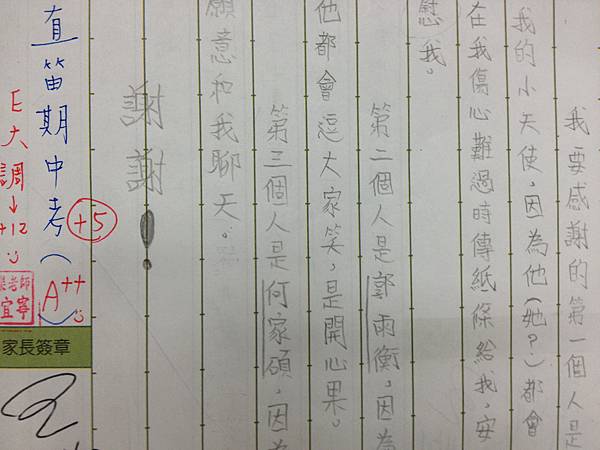 我要感謝的第一個人是
我的小天使,因為他(她?)都會
在我傷心難過時傳紙條給我,安
慰我。
第二個人是郭雨衡,因為
他都會逗大家笑,是開心果。
第三個人是何家碩,因為
願意和我聊天。
謝謝!
直笛期中考(A++)
+5
E大調→+12
老師
宜寧
家長簽章